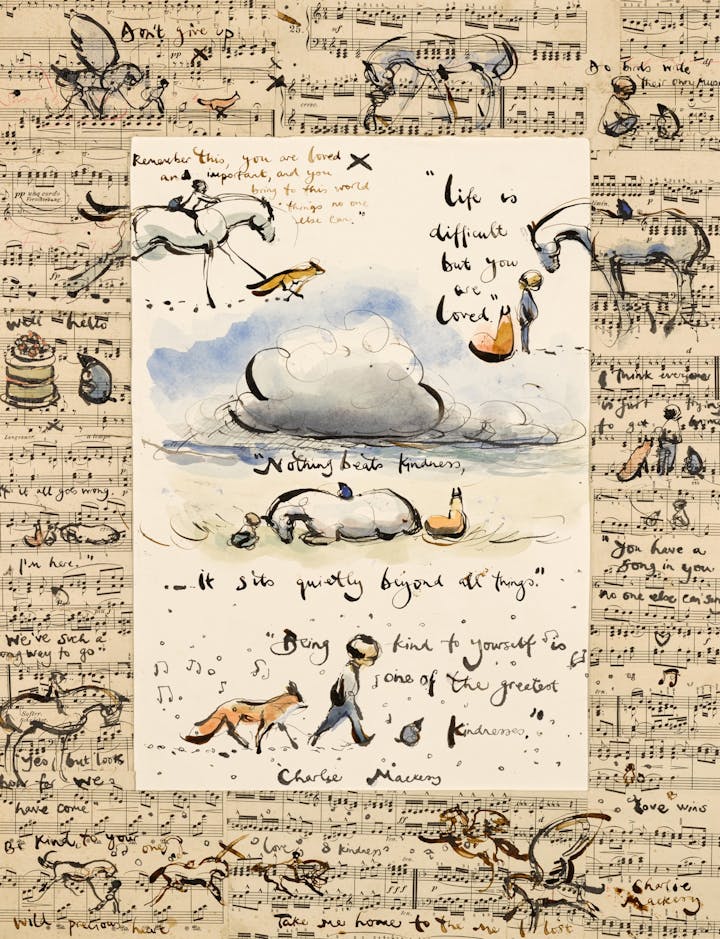 Don't give up
Do birds write
their own music
Remember this, you are loved
and important, and you
bring to this world
things no one
else can."
"Life is
difficult
but you
are
loved."
well hello
I think everyone
is just trying
to get home
"Nothing beats kindness,
it all goes wrong.
I'm here."
... It sits quietly beyond all things."
"You have a
song in you
no one else can sing
"We've such a
long way to go"
"Being kind to yourself is
one of the greatest
kindnesses."
Yes, but look
how far we
have come
Charlie Mackesy
Love wins
Be kind, to your
own
love & kindness
Wild precious heart
Take me home to the me I lost
Charlie
Mackesy